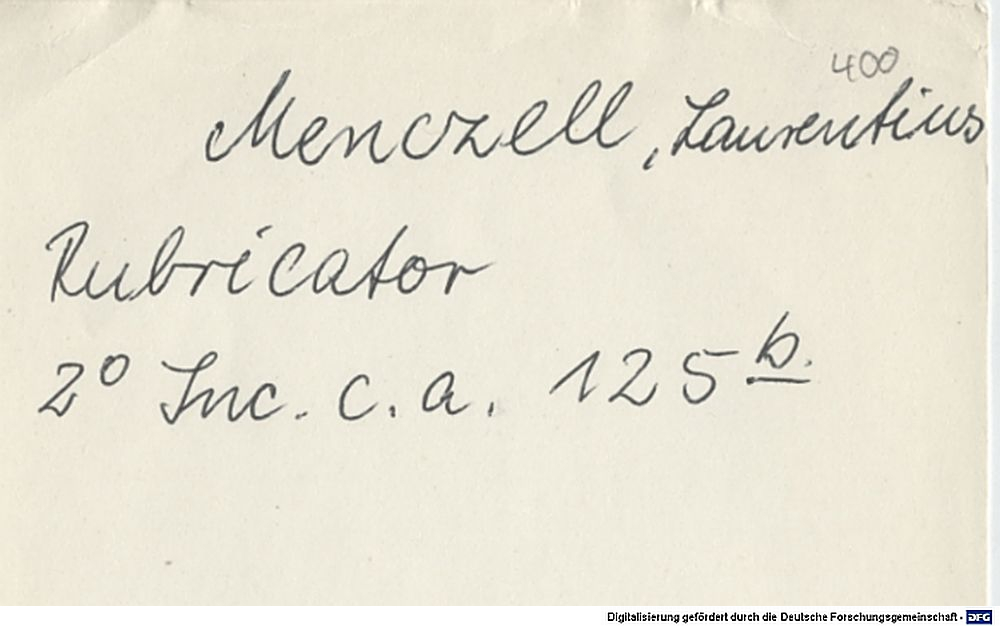 400
Menczell, Laurentius
Rubricator
2º Inc. c. a. 125 b.
Digitalisierung gefördert durch die Deutsche Forschungsgemeinschaft - DFG